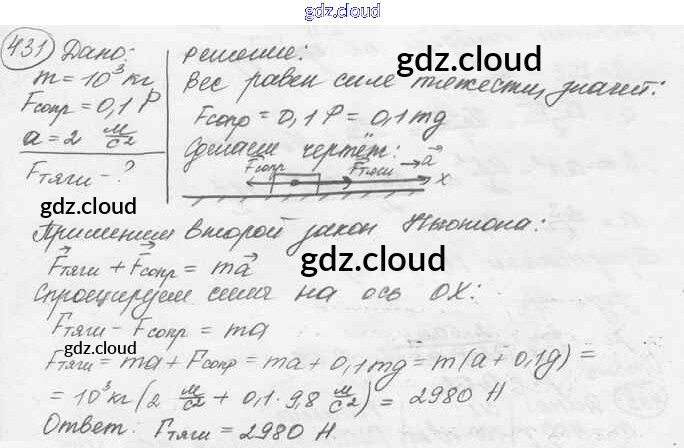 gdz.cloud
431 Дано:
m = 10³ кг
Fсопр = 0,1 P
a = 2 м/с²
Fтяги - ?
Решение:
gdz.cloud
Вес равен силе тяжести, значит:
Fсопр = 0,1 P = 0,1 mg
Сделаем чертёж:
Fсопр Fтяги → a⃗
x
gdz.cloud
Применим второй закон Ньютона:
F⃗тяги + F⃗сопр = ma⃗
gdz.cloud
Спроецируем силы на ось OX:
Fтяги - Fсопр = ma
gdz.cloud
Fтяги = ma + Fсопр = ma + 0,1 mg = m(a + 0,1g) =
= 10³ кг (2 м/с² + 0,1 · 9,8 м/с²) = 2980 Н
Ответ: Fтяги = 2980 Н.
gdz.cloud